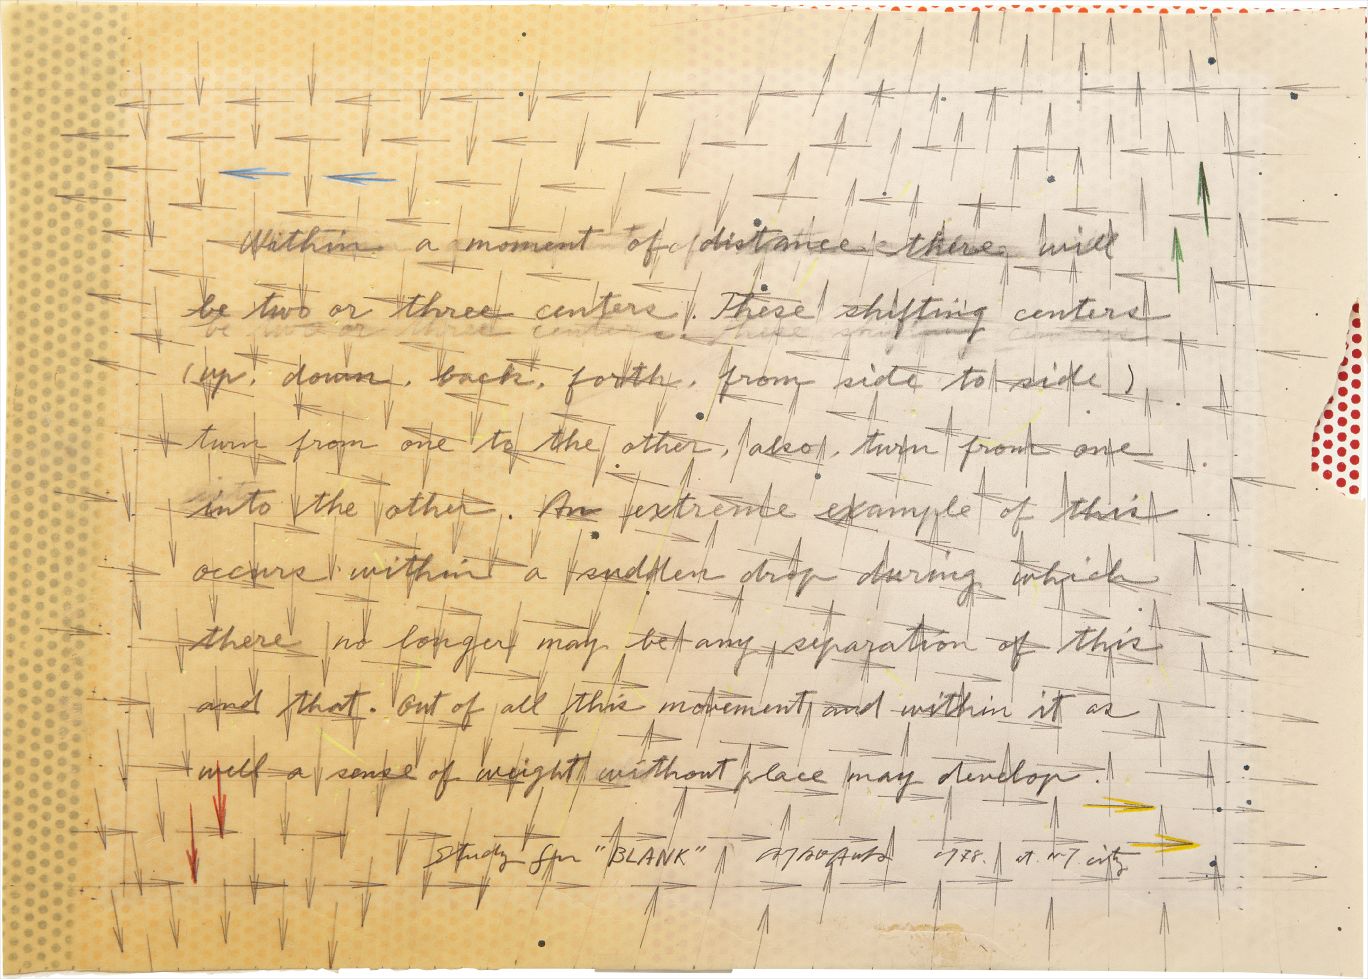 Within a moment of distance there will
be two or three centers. These shifting centers
(up, down, back, forth, from side to side)
turn from one to the other, also, turn from one
into the other. An extreme example of this
occurs within a sudden drop during which
there no longer may be any separation of this
and that. Out of all this movement and within it as
well a sense of weight without place may develop.
Study for "BLANK" 1978. at N.Y. city